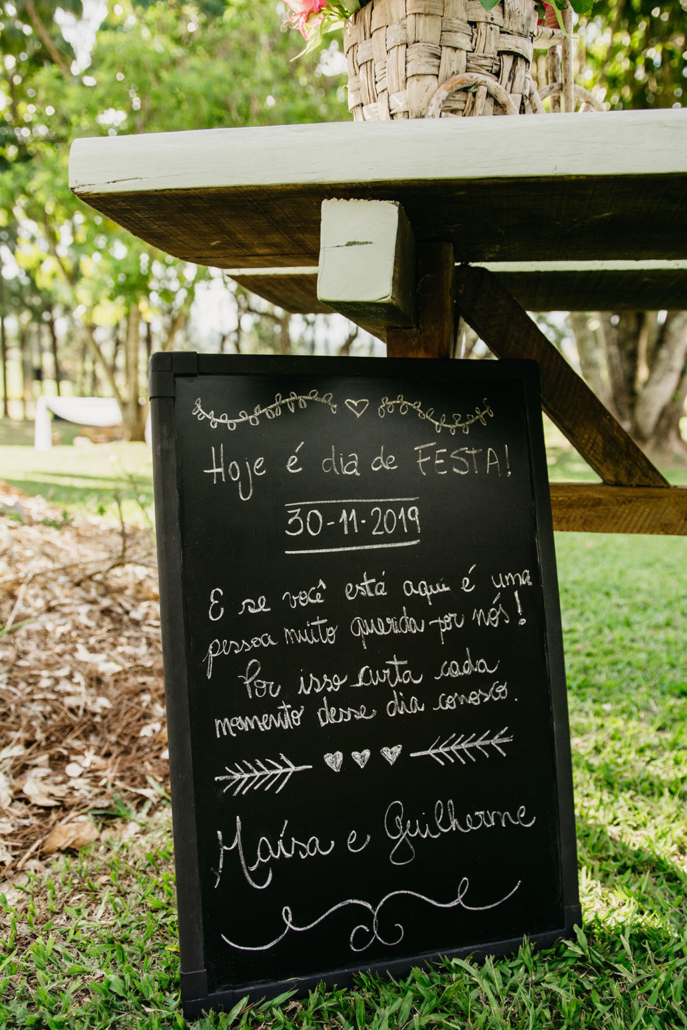 Hoje é dia de FESTA!
30-11-2019
E se você está aqui é uma
pessoa muito querida por nós!
Por isso curta cada
momento desse dia conosco.
Maísa e Guilherme